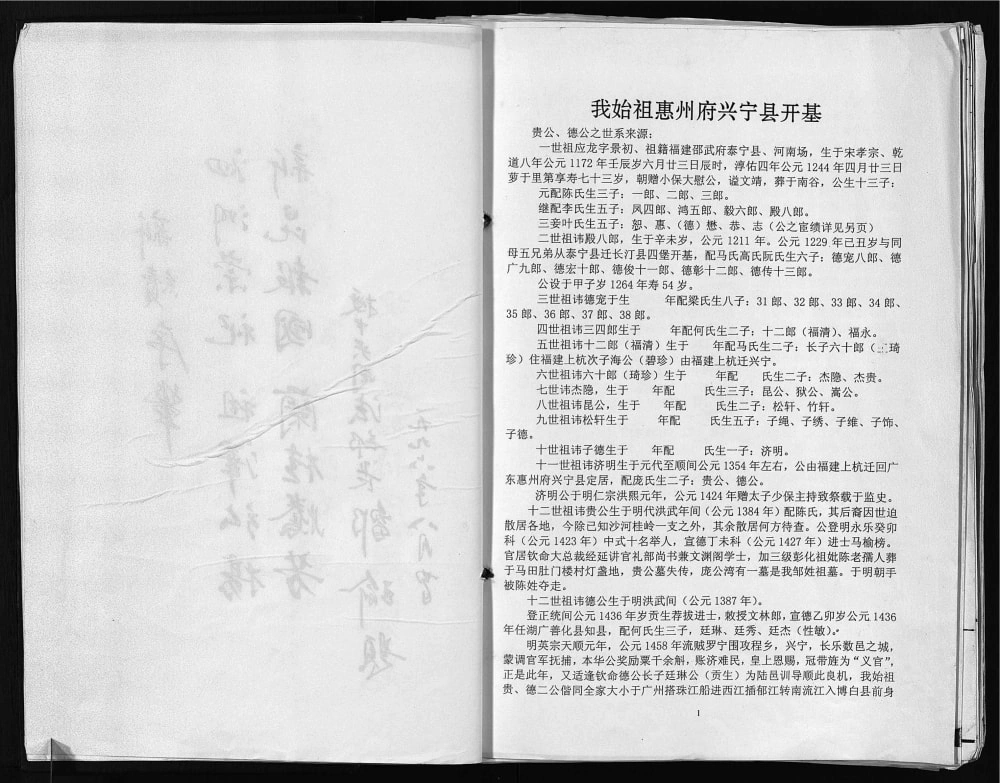 我始祖惠州府兴宁县开基
贵公、德公之世系来源：
一世祖应龙字景初、祖籍福建邵武府泰宁县、河南场，生于宋孝宗、乾
道八年公元 1172 年壬辰岁六月廿三日辰时，淳佑四年公元 1244 年四月廿三日
萝于里第享寿七十三岁，朝赠小保大慰公，谥文靖，葬于南谷，公生十三子：
元配陈氏生三子：一郎、二郎、三郎。
继配李氏生五子：凤四郎、鸿五郎、毅六郎、殿八郎。
三妾叶氏生五子：恕、惠、（德）懋、恭、志（公之宦绩详见另页）
二世祖讳殿八郎，生于辛未岁，公元 1211 年。公元 1229 年己丑岁与同
母五兄弟从泰宁县迁长汀县四堡开基，配马氏高氏阮氏生六子：德宠八郎、德
广九郎、德宏十郎、德俊十一郎、德彰十二郎、德传十三郎。
公设于甲子岁 1264 年寿 54 岁。
三世祖讳德宠于生 年配梁氏生八子：31 郎、32 郎、33 郎、34 郎、
35 郎、36 郎、37 郎、38 郎。
四世祖讳三四郎生于 年配何氏生二子：十二郎（福清）、福永。
五世祖讳十二郎（福清）生于 年配马氏生二子：长子六十郎（琦
珍）住福建上杭次子海公（碧珍）由福建上杭迁兴宁。
六世祖讳六十郎（琦珍）生于 年配 氏生二子：杰隐、杰贵。
七世讳杰隐，生于 年配 氏生三子：昆公、狱公、嵩公。
八世祖讳昆公，生于 年配 氏生二子：松轩、竹轩。
九世祖讳松轩生于 年配 氏生五子：子绳、子绣、子维、子饰、
子德。
十世祖讳子德生于 年配 氏生一子：济明。
十一世祖讳济明生于元代至顺间公元 1354 年左右，公由福建上杭迁回广
东惠州府兴宁县定居，配庞氏生二子：贵公、德公。
济明公于明仁宗洪熙元年，公元 1424 年赠太子少保主持致祭载于监史。
十二世祖讳贵公生于明代洪武年间（公元 1384 年）配陈氏，其后裔因世迫
散居各地，今除已知沙河桂岭一支之外，其余散居何方待查。公登明永乐癸卯
科（公元 1423 年）中式十名举人，宣德丁未科（公元 1427 年）进士马榆榜。
官居钦命大总裁经延讲官礼部尚书兼文渊阁学士，加三级彭化祖妣陈老孺人葬
于马田肚门楼村灯盏地，贵公墓失传，庞公湾有一墓是我邹姓祖墓。于明朝手
被陈姓夺走。
十二世祖讳德公生于明洪武间（公元 1387 年）。
登正统间公元 1436 年岁贡生荐拔进士，敕授文林郎，宣德乙卯岁公元 1436
年任湖广善化县知县，配何氏生三子，廷琳、廷秀、廷杰（性敏）。
明英宗天顺元年，公元 1458 年流贼罗宁围攻程乡，兴宁，长乐数邑之城，
蒙调官军抚捕，本华公奖励粟千余斛，账济难民，皇上恩赐，冠带旌为“义官”，
正是此年，又适逢钦命德公长子廷琳公（贡生）为陆邑训导顺此良机，我始祖
贵、德二公偕同全家大小于广州搭珠江船进西江插郁江转南流江入博白县前身
1